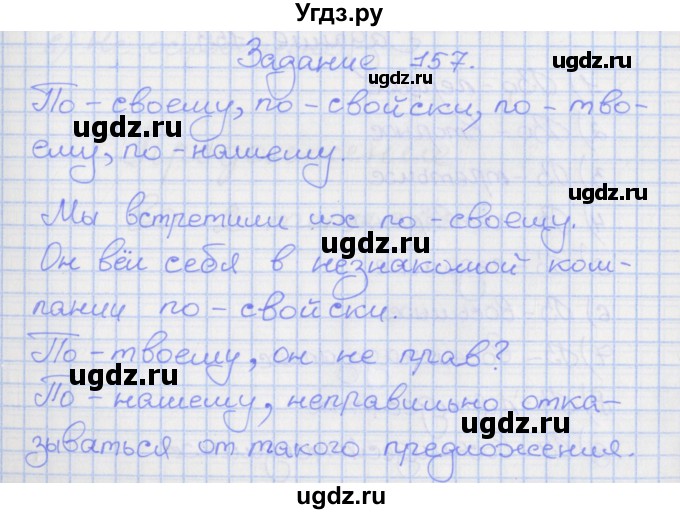 Угдз.ру
Задание 157.
ugdz.ru
По-своему, по-свойски, по-тво-
ugdz.ru ugdz.ru
ему, по-нашему.
ugdz.ru
Мы встретили их по-своему.
ugdz.ru
Он вёл себя в незнакомой ком-
ugdz.ru
пании по-свойски.
По-твоему, он не прав?
ugdz.ru
По-нашему, неправильно отка-
ugdz.ru
зываться от такого предложения.
ugdz.ru
ugdz.ru